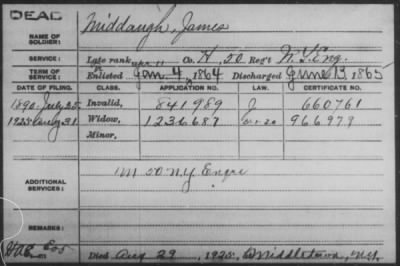 DEAD
NAME OF SOLDIER: Middaugh, James
SERVICE: Late rank Co. H, 50 Reg't N.Y. Eng.
TERM OF SERVICE: Enlisted Jan 4, 1864 Discharged June 13, 1865
DATE OF FILING. CLASS. APPLICATION NO. LAW. CERTIFICATE NO.
1890 July 25 Invalid, 841,989 J 660761
1925 Aug 31 Widow, 1236687 966979
Minor,
ADDITIONAL SERVICES: 50 N.Y. Engrs
REMARKS:
Died Aug 29, 1925, Middletown, N.Y.